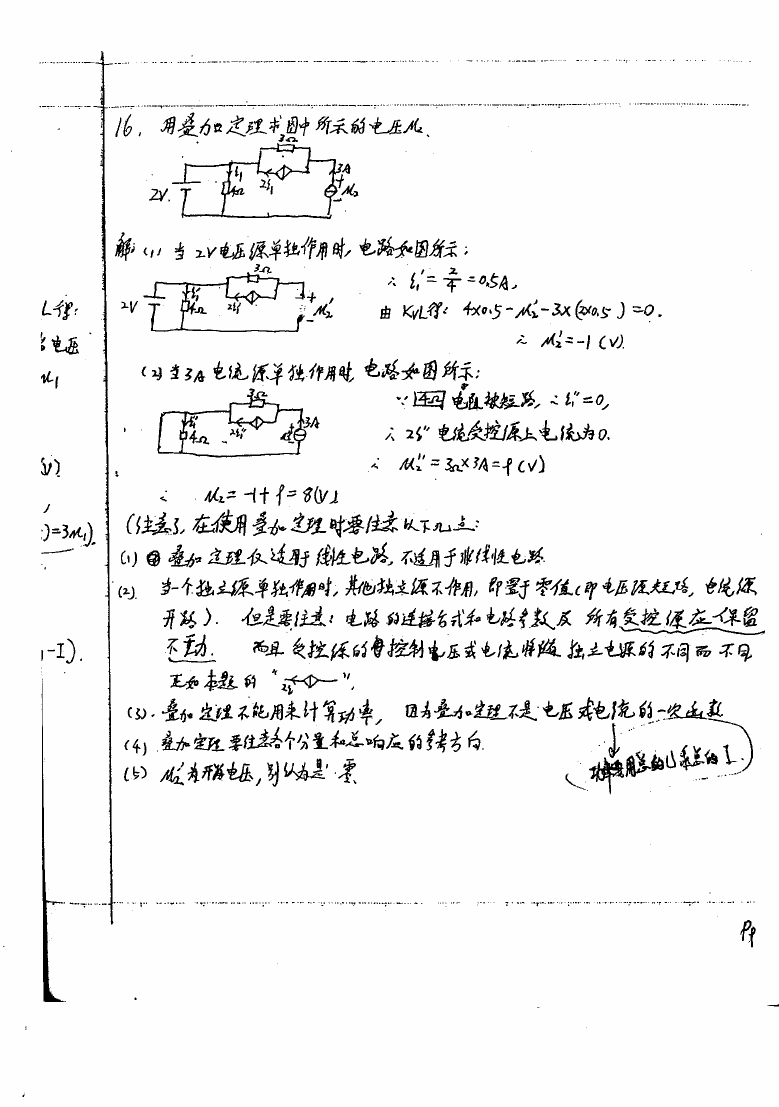 16. 用叠加定理求图中所示的电压u₂.
3Ω
i₁
4Ω
2i₁
3A
2V
+
u₂
-
解: (1) 当2V电压源单独作用时, 电路如图所示:
3Ω
2V
i₁'
4Ω
2i₁'
+
u₂'
-
∴ i₁' = 2/4 = 0.5A,
由KVL得: 4×0.5-u₂'-3×(2×0.5)=0.
∴ u₂'=-1 (V).
(2) 当3A电流源单独作用时, 电路如图所示:
3Ω
i₁"
4Ω
2i₁"
3A
∵ 4Ω 电阻被短路, ∴ i₁"=0,
∴ 2i₁" 电流受控源上电流为0.
∴ u₂" = 3Ω×3A=9 (V)
∴ u₂= -1+9=8(V)
(注意), 在使用叠加定理时要注意以下几点:
(1) 叠加定理仅适用于线性电路, 不适用于非线性电路.
(2). 当一个独立源单独作用时, 其他独立源不作用, 即置于零值(即电压源短路, 电流源
开路). 但是要注意: 电路的连接方式和电路参数及 所有受控源应一保留
不动. 而且 受控源的控制电压或电流将随 独立电源的不同而不同
正如本题的 " 2i₁ ".
(3). 叠加定理不能用来计算功率, 因为叠加定理不是电压或电流的一次函数
(4) 叠加定理要注意各个分量和总响应的参考方向.
(功率要用总的U乘总的I.)
(5) u₂'为开路电压, 别认为是 零.
L得:
电压
u₁
)=3u₁).
1-I).
P9